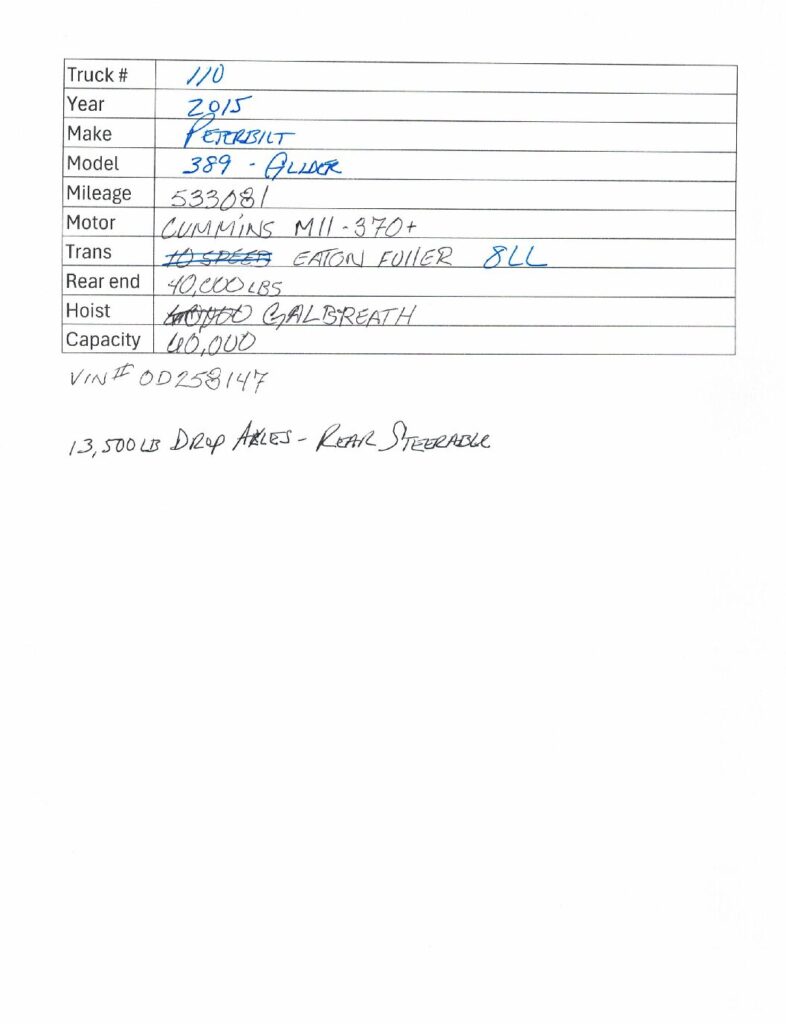 Truck # 110
Year 2015
Make PETERBILT
Model 389 - GLIDER
Mileage 533081
Motor CUMMINS M11-370+
Trans 10 SPEED EATON FULLER 8LL
Rear end 40,000 LBS
Hoist GALBREATH
Capacity 60,000
VIN# 0D258147
13,500 LB DROP AXLES - REAR STEERABLE